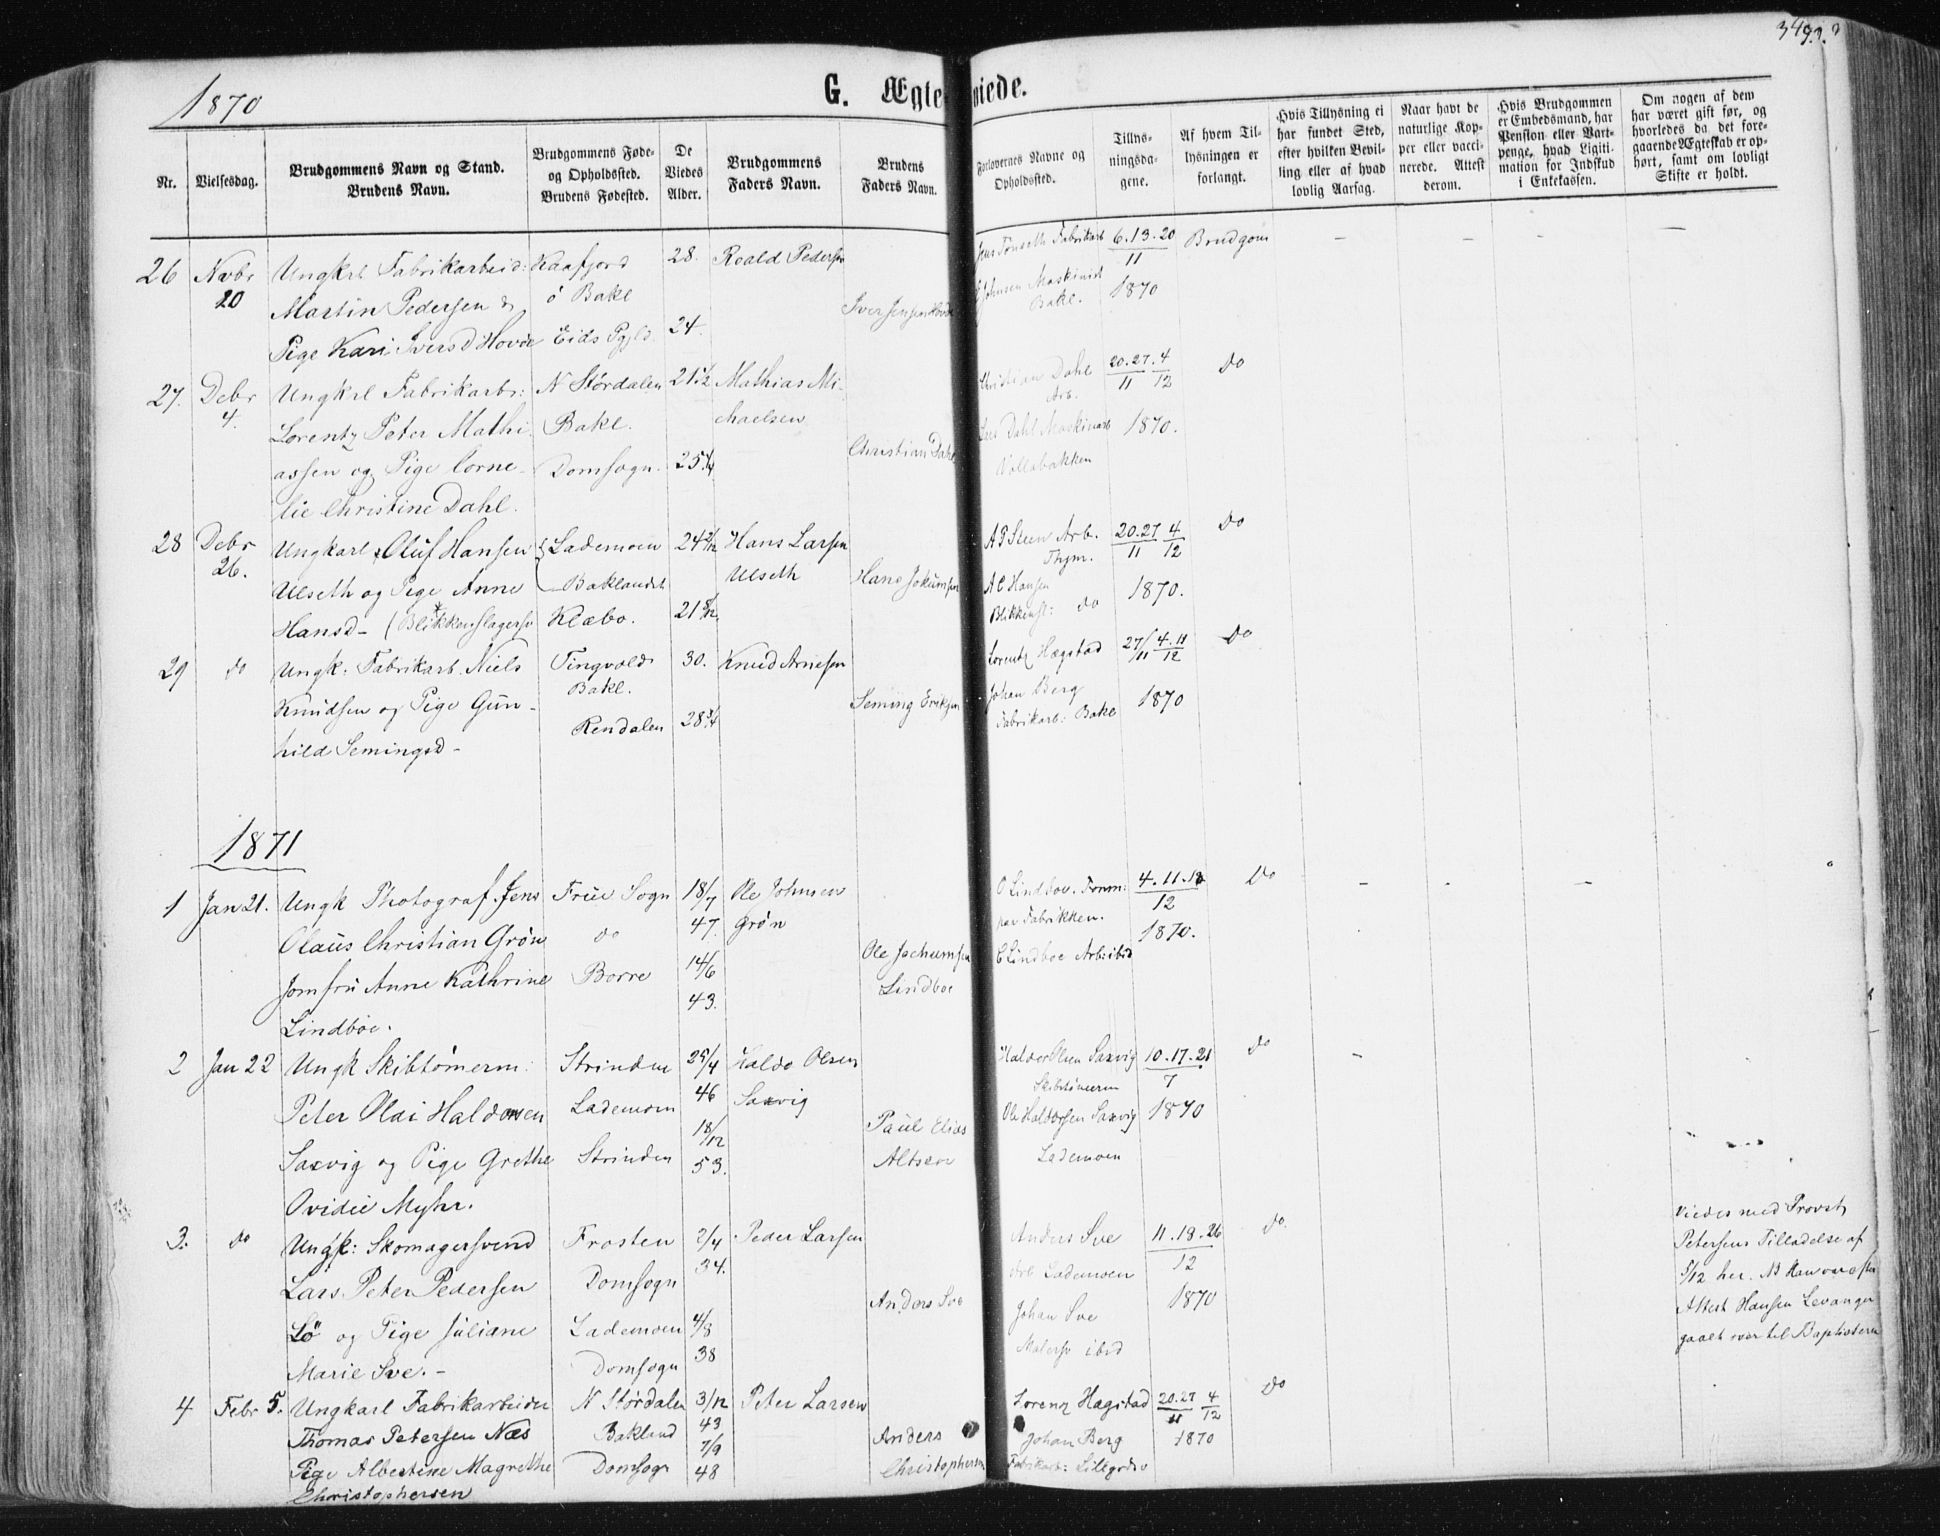 349.
1870
G. Ægteviede.
Nr.
Vielsesdag.
Brudgommens Navn og Stand.
Brudens Navn.
Brudgommens Føde-
og Opholdssted.
Brudens Fødested.
De
Viedes
Alder.
Brudgommens
Faders Navn.
Brudens
Faders Navn.
Forlovernes Navne og
Opholdssted.
Tillys-
ningsda-
gene.
Af hvem Til-
lysningen er
forlangt.
Hvis Tillysning ei
har fundet Sted,
efter hvilken Bevil-
ling eller af hvad
lovlig Aarsag.
Naar havt de
naturlige Kop-
per eller vacci-
nerede. Attest
derom.
Hvis Brudgommen
er Embedsmand, har
Pension eller Vart-
penge, hvad Ligiti-
mation for Indskud
i Enkekassen.
Om nogen af dem
har været gift før, og
hvorledes da det fore-
gaaende Ægteskab er op-
hørt, samt om lovligt
Skifte er holdt.
26 Novbr 20
Ungkrl Fabrikarbeid:
Martin Pedersen &
Pige Kari Iversd Hovde
Kaafjord
ó Bakl
Eids Pgjld.
28.
24.
Roald Pedersen
Iver Jensen Hovde
Jens Tønseth Fabrikarb
Johnsen Maskinist
Bakl.
6.13.20
11
1870
Brudgom
27. Debr 4.
Ungkrl Fabrikarb:
Lorentz Peter Mathi
assen og Pige Corne-
lie Christine Dahl.
N Stördalen
Bakl.
Domsogn.
21 1/2
25 1/4
Mathias Mi-
chaelsen
Christian Dahl
Christian Dahl
Arb.
Lars Dahl Maskinarb
Vollabakken
20.27 4
11 12
1870.
do
28 Debr 26.
Ungkarl Oluf Hansen
Ulseth og Pige Anne
Hansd- (Blikkenslagersv
Lademoen
Baklandet
Klæbo.
24 2/12
21 8/12
Hans Larsen
Ulseth
Hans Jokumsen
A P Steen Arb.
Thjm.
A C Hansen
Blikkensl: do
20.27 4
11 12
1870.
do
29 do
Ungk: Fabrikarb. Niels
Knudsen og Pige Gun-
hild Semingsd-
Tingvold
Bakl.
Rendalen
30.
28 3/4
Knud Arnesen
Seming Eriksen
Lorentz Hægstad
Johan Berg
Fabrikarb: Bakl
27/11 4.11
12
1870
do
1871
1 Jan 21.
Ungk Photograf Jens
Olaus Christian Grön
Jomfru Anne Kathrine
Lindböe.
Frue Sogn
do
Borre
18/7
47.
14/6
43.
Ole Johnsen
Grön
Ole Jochumsen
Lindboe
O Lindboe. Formm:
paa Fabrikken.
C Lindboe Arb: ibid
4.11.18
12
1870.
do
2 Jan 22
Ungk Skibtömerm:
Peter Olai Haldorsen
Saxvig og Pige Grethe
Ovidie Myhr.
Strinden
Lademoen
Strinden
25/4
46
18/12
53.
Haldo Olsen
Saxvig
Paul Elias
Altsen
Haldor Olsen Saxvig
Skibstömerm
Ole Haldorsen Saxvig
Lademoen
10.17.21
7
1870
do
3. do
Ungk: Skomagersvend
Lars Peter Pedersen
Lö og Pige Juliane
Marie Sve.-
Frosten
Domsogn
Lademoen
Domsogn
2/4
34.
4/8
38
Peder Larsen
Anders Sve
Anders Sve
Arb Ladемoen
Johan Sve
Malersv ibid
11.18.26
12
1870
do.
Viedes med Provst
Petersens Tilladelse af
5/12 her. NB Han var efter
Attest Hansen Levanger
gaaet over til Baptisterne
4 Febr 5.
Ungkarl Fabrikarbeider
Thomas Petersen Næs
Pige Albertine Magrethe
Christophersen
N Stördalen
Bakland
Domsogn
3/12
43
7/9
48
Peter Larsen
Anders
Christophersen
Lorenz Hægstad
Johan Berg
Fabrikarb:
20.27 4
11 12
1870
do